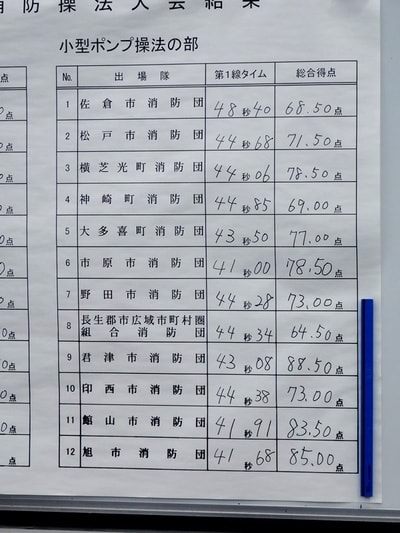 消防操法大会結果
小型ポンプ操法の部
No. 出場隊 第1線タイム 総合得点
1 佐倉市消防団 48秒40 68.50点
2 松戸市消防団 44秒68 71.50点
3 横芝光町消防団 44秒06 78.50点
4 神崎町消防団 44秒85 69.00点
5 大多喜町消防団 43秒50 77.00点
6 市原市消防団 41秒00 78.50点
7 野田市消防団 44秒28 73.00点
8 長生郡市広域市町村圏
組合消防団 44秒34 64.50点
9 君津市消防団 43秒08 88.50点
10 印西市消防団 44秒38 73.00点
11 館山市消防団 41秒91 83.50点
12 旭市消防団 41秒68 85.00点